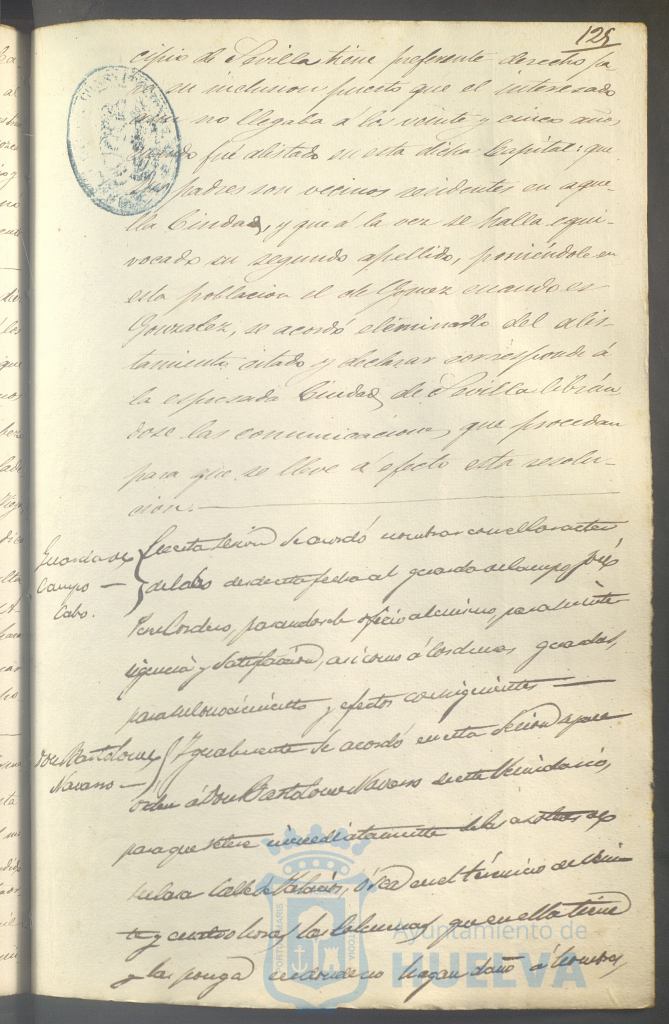 125
cipio de Sevilla tiene preferente derecho pa
ra su inclusion puesto que el interesado
aun no llegaba á los veinte y cinco años
cuando fué alistado en esta dicha Capital: que
sus padres son vecinos residentes en aque-
lla Ciudad, y que á la vez se halla equi-
vocado su segundo apellido, poniéndole en
esta poblacion el de Gomez cuando es
Gonzalez, se acordó eliminarlo del alis-
tamiento citado y declarar corresponde á
la espresada Ciudad de Sevilla librán
dose las comunicaciones que procedan
para que se lleve á efecto esta resolu-
cion.
Guarda de
Campo
Cabo.
En esta sesion se acordó nombrar con el caracter
de cabo desde esta fecha al guarda de campo José
Cordero, pasandosele oficio al mismo para su inte
ligencia y satisfaccion, asi como á los demas guardas,
para su conocimiento y efectos consiguientes
Don Bartolome
Navarro
Igualmente se acordó en esta sesion
orden á Don Bartolome Navarro de este Vecindario,
para que retire inmediatamente de
la Calle Palacios, ó sea en el término de vein
te y cuatro horas las Colmenas que en ella tiene
y las ponga en donde no hagan daño á
Ayuntamiento de
HUELVA